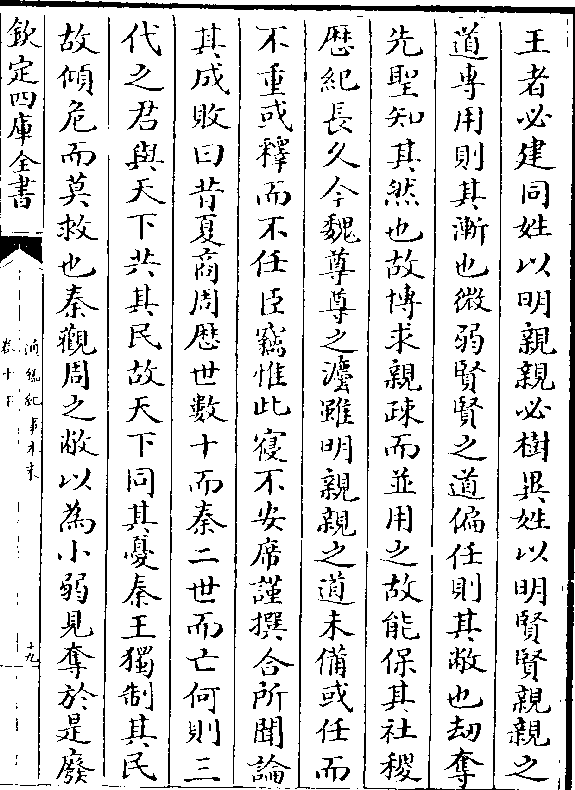 王者必建同姓以明親親必樹異姓以明賢賢親親之
道專用則其漸也微弱賢賢之道偏任則其敝也刼奪
先聖知其然也故博求親疎而並用之故能保其社稷
歴紀長久今魏尊尊之灋雖明親親之道未備或任而
不重或釋而不任臣竊惟此寢不安席謹撰合所聞論
其成敗曰昔夏商周歴世數十而秦二世而亡何則三
代之君與天下共其民故天下同其憂秦王獨制其民
故傾危而莫救也秦觀周之敝以為小弱見奪於是廢
欽定四庫全書
通鑑紀事本末
卷十下
十九